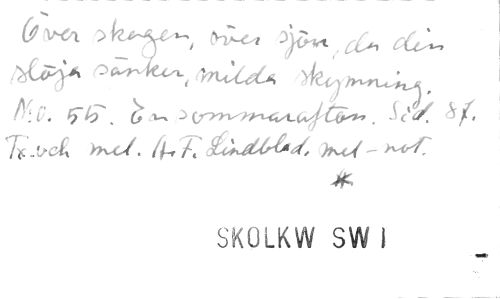 Över skogen, över sjön, du din
slöja sänker, milda skymning.
N:o. 55. En sommarafton. Sid. 87.
Tx. och mel. A.F. Lindblad. mel-not.
*
SKOLKW SW I